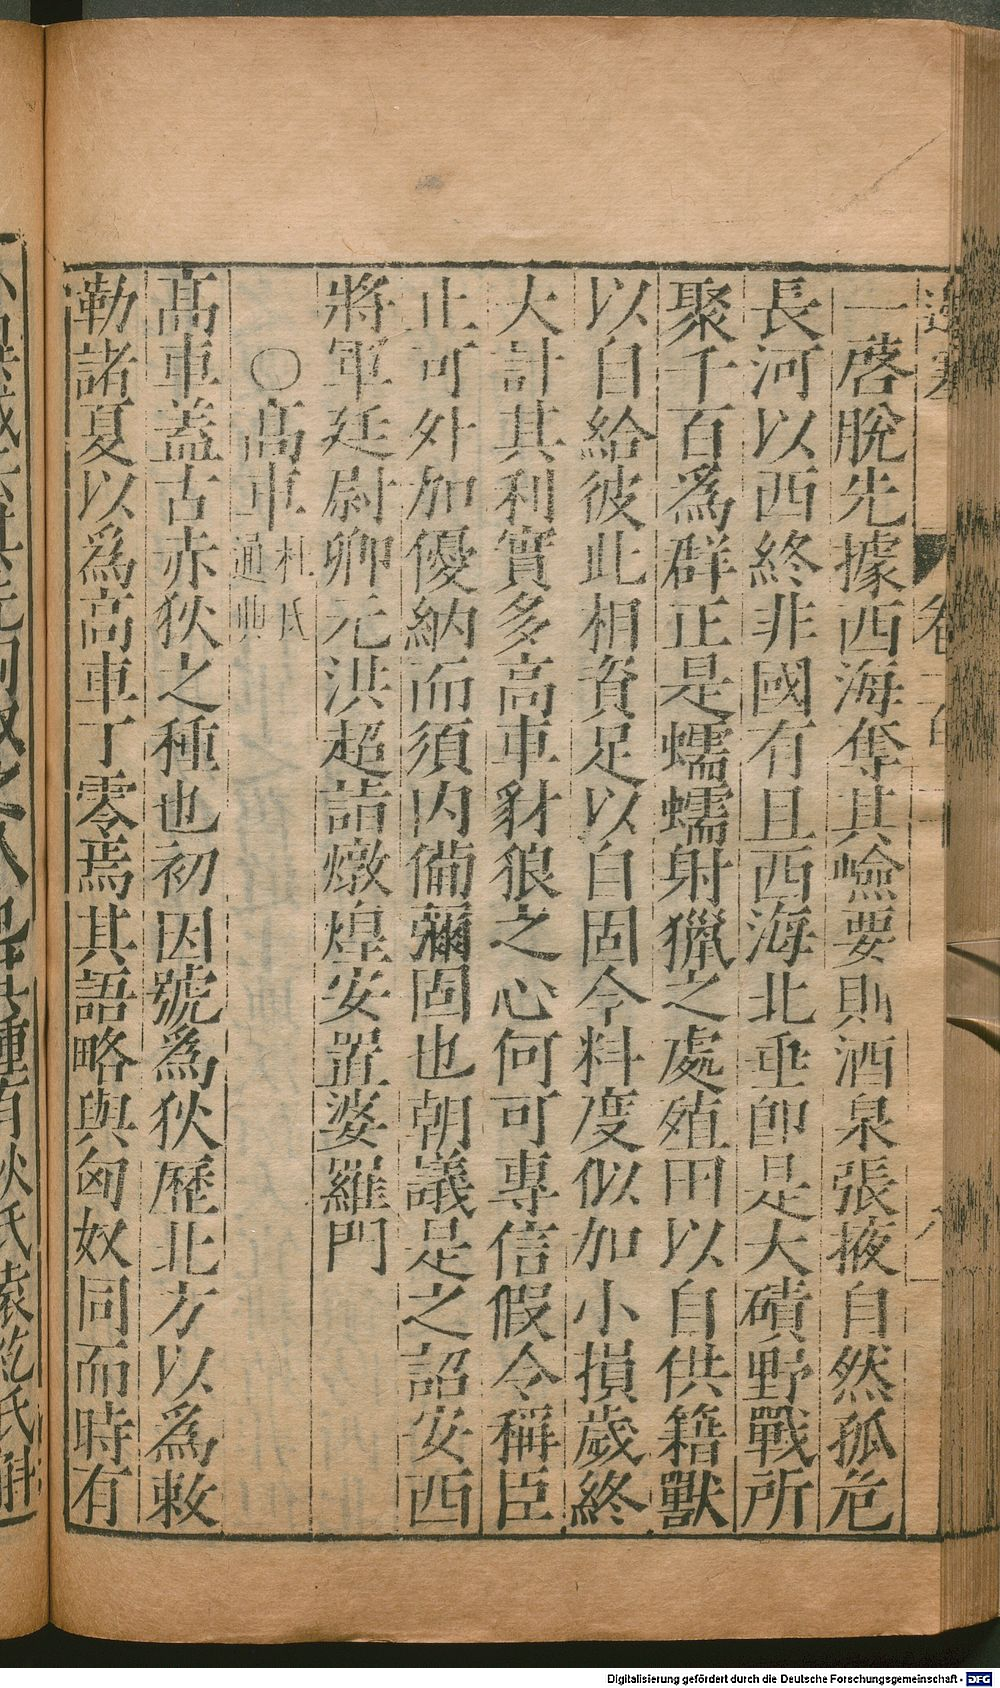 一啓脫先據西海奪其嶮要則酒泉張掖自然孤危
長河以西終非國有且西海北垂卽是大磧野戰所
聚千百爲群正是蠕蠕射獵之處殖田以自供籍獸
以自給彼此相資足以自固今料度似加小損歲終
大計其利實多高車豺狼之心何可專信假令稱臣
止可外加優納而須內備彌固也朝議是之詔安西
將軍廷尉卿元洪超詣燉煌安置婆羅門
○高車杜氏通典
高車蓋古赤狄之種也初因號爲狄歷北方以爲敕
勒諸夏以爲高車丁零焉其語略與匈奴同而時有
Digitalisierung gefördert durch die Deutsche Forschungsgemeinschaft - DFG